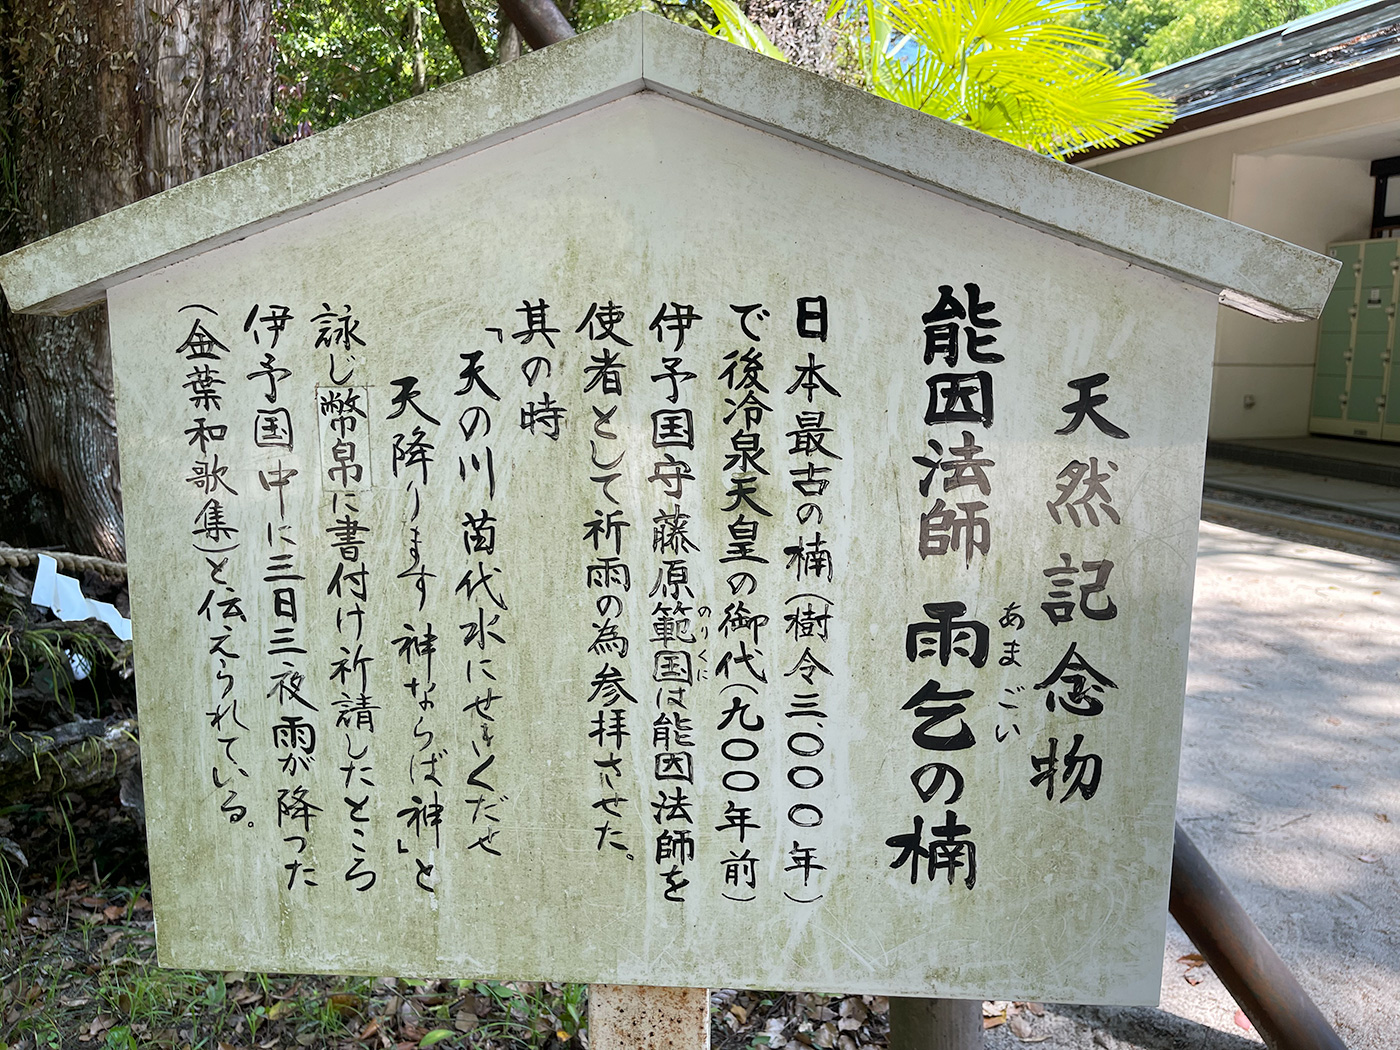 天然記念物
能因法師 雨乞の楠
あまごい
日本最古の楠(樹令三、〇〇〇年)
で後冷泉天皇の御代(九〇〇年前)
伊予国守藤原範国は能因法師を
のりくに
使者として祈雨の為参拝させた。
其の時
「天の川 苗代水にせきくだせ
天降ります神ならば神」と
詠じ幣帛に書付け祈請したところ
伊予国中に三日三夜雨が降った
(金葉和歌集)と伝えられている。